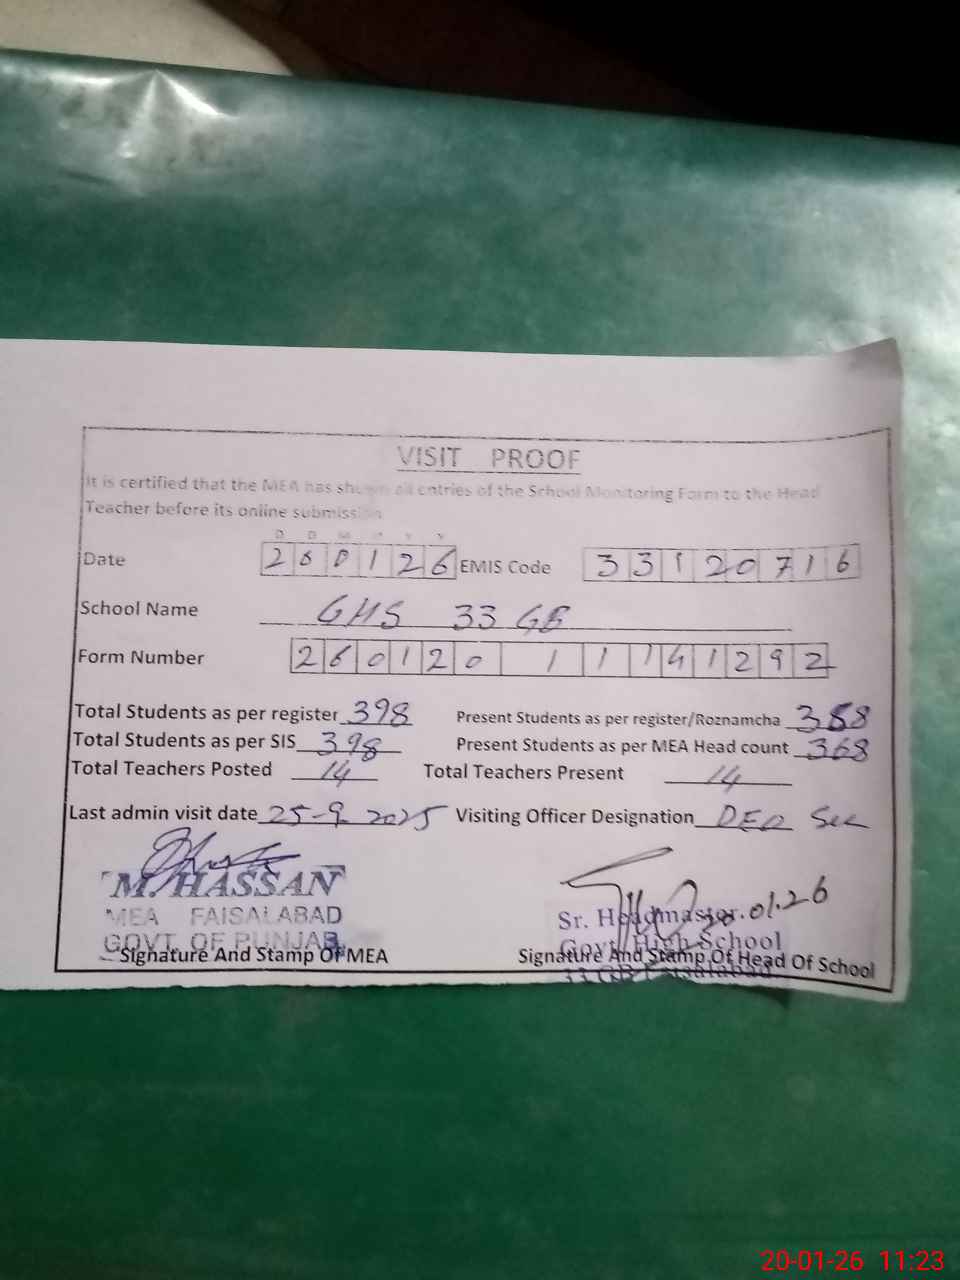 VISIT PROOF
It is certified that the MEA has shown all entries of the School Monitoring Form to the Head
Teacher before its online submission
D D M M Y Y
Date 200126 EMIS Code 33120716
School Name GHS 33 GB
Form Number 260120 1 1 141292
Total Students as per register 398 Present Students as per register/Roznamcha
Total Students as per SIS 398 Present Students as per MEA Head count 368
Total Teachers Posted 14 Total Teachers Present 14
Last admin visit date 25-9 2025 Visiting Officer Designation DEO Sec
M. HASSAN
MEA FAISALABAD
GOVT. OF PUNJAB
Signature And Stamp Of MEA
20.01.26
Sr. Headmaster
Govt. High School
33 GB Faisalabad
Signature And Stamp Of Head Of School
20-01-26 11:23